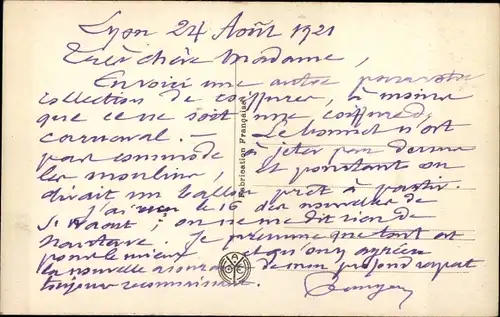 Lyon 24 Août 1921
Très chère Madame,
En voici une autre pour votre
collection de coiffures, à moins
que ce ne soit une coiffure de
carnaval. — Le bonnet n'est
pas commode à jeter par dessus
les moulins, et pourtant on
dirait un ballon prêt à partir.
J'ai le 16 des nouvelles de
St Raout; on ne me dit rien de
Je présume que tout est
pour le mieux et qu'on
la nouvelle assurance de mon profond respect
toujours reconnaissant.
Fabrication Française